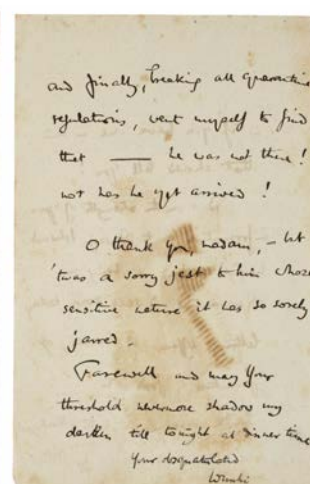 and finally, breaking all quarantine
regulations, went myself to find
that —— he was not there!
nor has he yet arrived!
O thank you, madam, – but
'twas a sorry jest to him whose
sensitive nature it has so sorely
jarred.
Farewell and may your
threshold nevermore shadow my
darken till tonight at dinner time
your